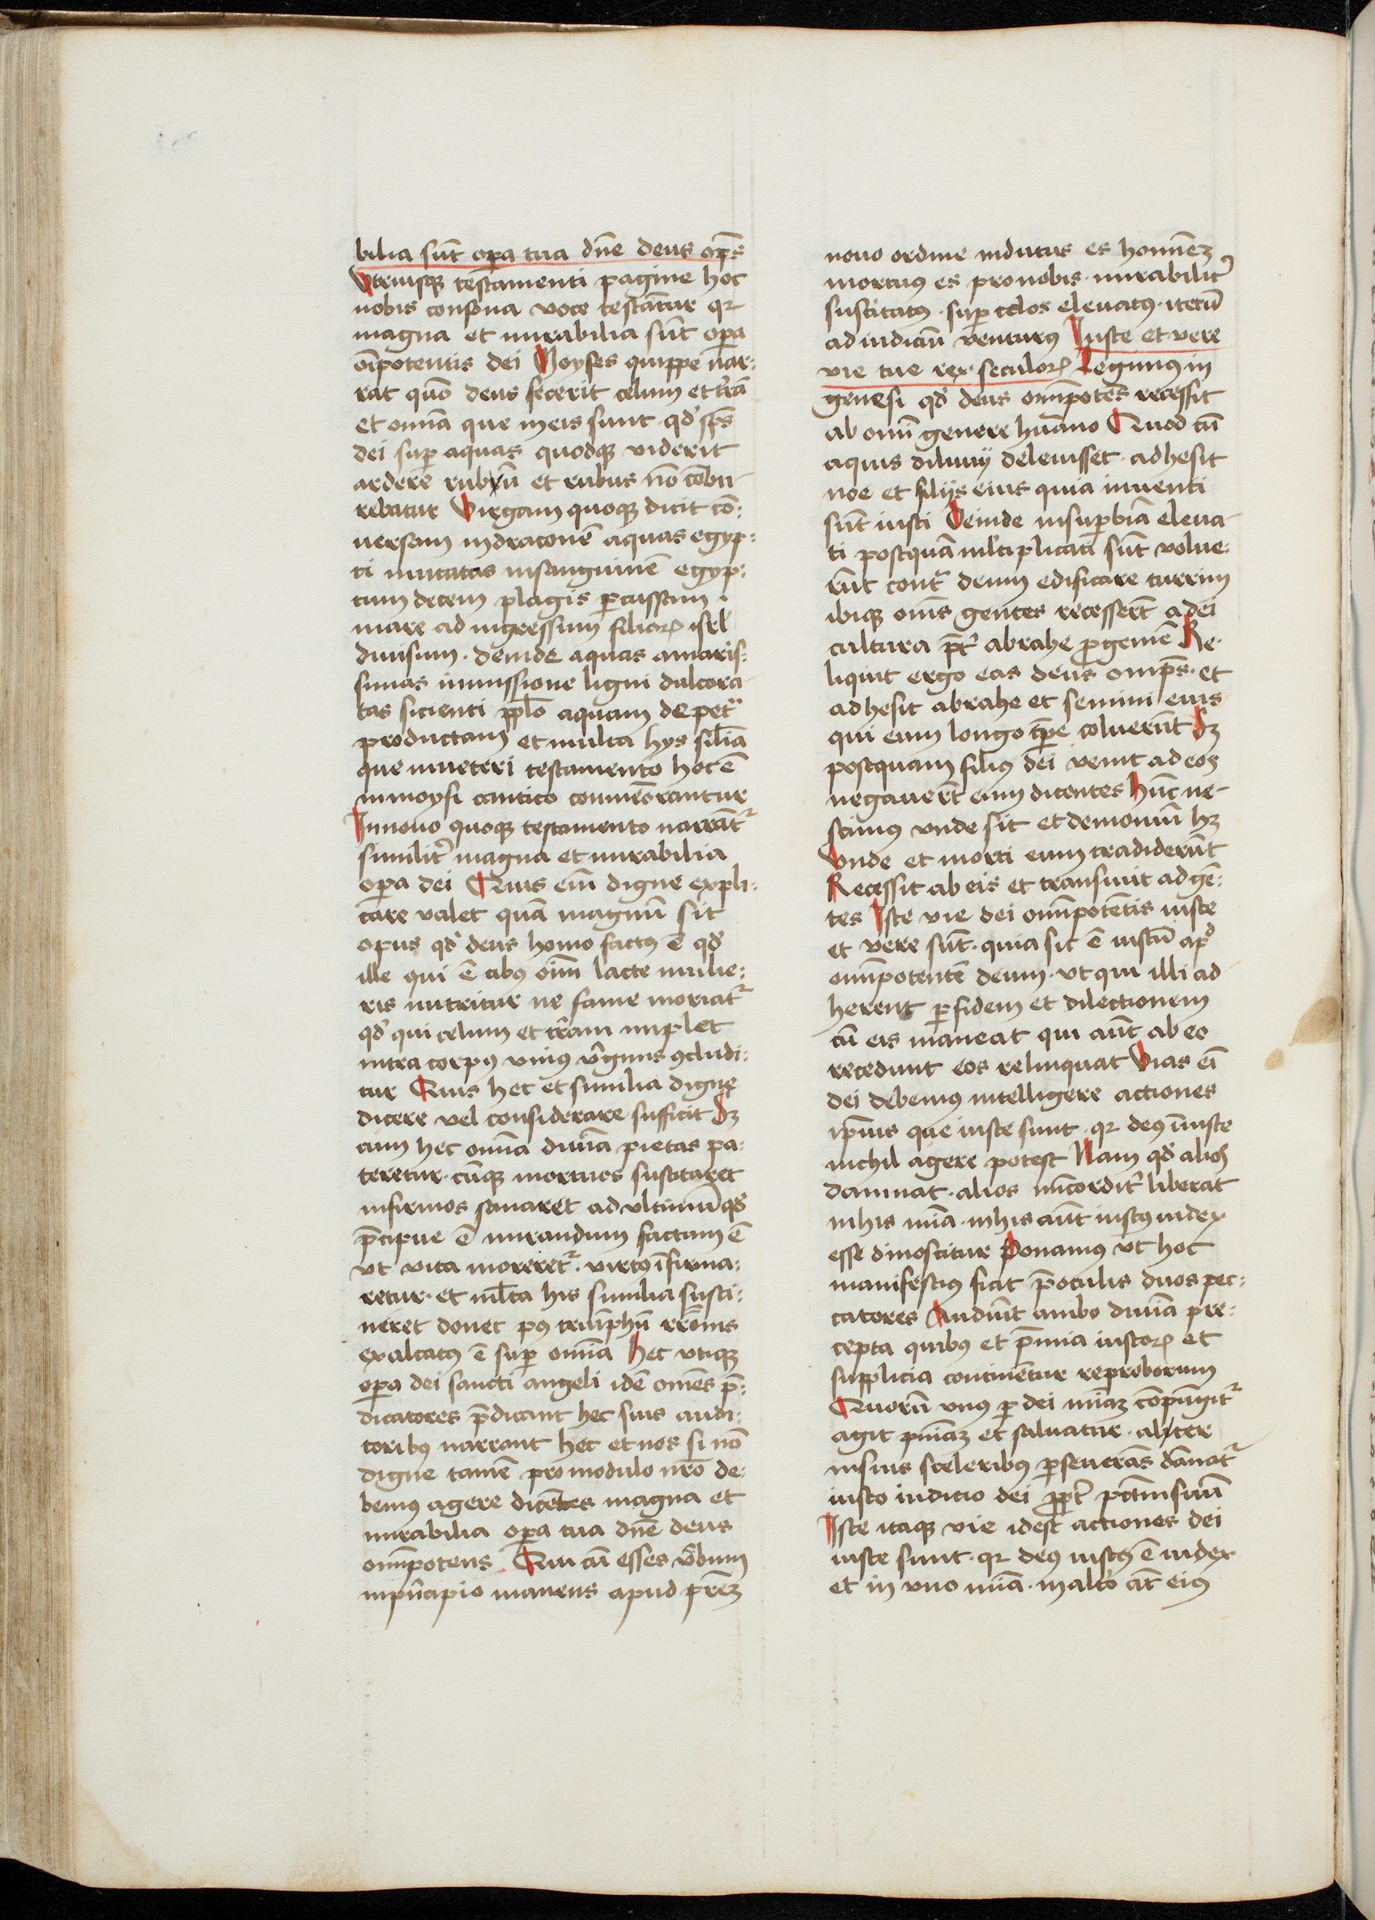 bilia sūt oꝑa tua dn̄e deus om̄ps
Vtriusqꝫ testamenti pagine hoc
nobis consona voce testātur qꝛ
magna et mirabilia sūt oꝑa
oīpotentis dei Moyses quippe nar-
rat quō deus fecerit celum et t̄rā
et omīa que in eis sunt qd̓ sp̄s
dei suꝑ aquas quodqꝫ viderit
ardere rubū et rubus nō cōbu
rebatur Virgam quoqꝫ dicit cō-
uersam in draconē aquas egyp-
ti mutatas in sanguinē egyp-
tum decem plagis ꝑcussam ·
mare ad ingressum filioꝝ isrl̄
diuisum · deinde aquas amaris-
simas immissione ligni dulcora
tas sicienti pp̄lo aquam de pet̓
productam et multa hys sil̄ia
que in veteri testamento hoc ē
in moysi cantico commēorantur
In nouo quoqꝫ testamento narrāt᷑
similit̓ magna et mirabilia
oꝑa dei Quis eī digne expli-
care valet quā magnū sit
opus qd̓ deus homo factꝰ ē qd̓
ille qui ē cibus oīm lacte mulie-
ris nutritur ne fame moriat᷑
qd̓ qui celum et t̄ram implet
intra corpꝰ vniꝰ v̓ginis ꝯcludi-
tur Quis hec et similia digne
dicere vel considerare sufficit Sꝫ
cum hec omīa diuīa pietas pa-
teretur · cūqꝫ mortuos suscitaret
infirmos sanaret ad vltimū qd̓
p̄cipue ē mirandum factum ē
vt vita moreret᷑ · virtꝰ īfirma-
retur · et ml̄ta his similia susti-
neret donec pꝰ triūphū rr̄onis
exaltatꝰ ē suꝑ omīa Hec vtiqꝫ
oꝑa dei sancti angeli idē omēs p̄-
dicatores p̄dicant hec suis audi-
toribꝰ narrant hec et nos si nō
digne tamē pro modulo nr̄o de-
bemꝰ agere dicētes magna et
mirabilia oꝑa tua dn̄e deus
om̄ipotens Qui cū esses v̓bum
in p̓ncipio manens apud pr̄eꝫ
nouo ordine indutus es hominēꝫ
mortuus es pro nobis · mirabilit̓
suscitatꝰ · suꝑ celos eleuatꝰ · iterū
ad iudiciū venturꝰ Iuste et vere
vie tue rex seculoꝝ Legimus in
genesi qd̓ deus om̄ipotēs recessit
ab omī genere humano Quod cū
aquis diluuij deleuisset · adhesit
noe et filijs eius quia inuenti
sūt iusti Deinde in suꝑbiā eleua-
ti postquā ml̓tiplicati sūt volue-
rūt cont̓ deum edificare turrim
ibiqꝫ om̄s gentes recesserūt a dei
cultura p̄t̓ abrahe ꝓgeniē Re-
liquit ergo eas deus om̄ps · et
adhesit abrahe et semini eius
qui eum longo tꝑe coluerūt Sꝫ
postquam filiꝰ dei venit ad eos
negauerūt eum dicentes hūc ne-
scimꝰ vnde sit et demoniū hꝫ
Vnde et morti eum tradiderūt
Recessit ab eis et transiuit ad gē-
tes Iste vie dei om̄ipotētis iuste
et vere sūt · quia sic ē iustū ap̓d
om̄ipotentē deum · vt qui illi ad
herent ꝑ fidem et dilectionem
cū eis maneat qui aūt ab eo
recedunt eos relinquat Vias eī
dei debemꝰ intelligere actiones
ip̄ius que iuste sunt · qꝛ deꝰ iniuste
nichil agere potest Nam qd̓ alios
damnat · alios mīcordit̓ liberat
in his mīa · in his aūt iustꝰ iudex
esse dinoscitur Ponamꝰ vt hoc
manifestiꝰ fiat p̄ oculis duos pec-
catores Audiūt ambo diuīa pre-
cepta quibꝰ et p̄mia iustoꝝ et
supplicia continētur reproborum
Quorū vnus ꝑ dei mīaꝫ cōpūgit᷑
agit pn̄iaꝫ et saluatur · alter
in suis sceleribꝰ ꝑseuerās dānat᷑
iusto iudicio dei ꝓpt̓ pc̄tm suū
Iste itaqꝫ vie idest actiones dei
iuste sunt · qꝛ deꝰ iustꝰ ē iudex
et in vno mīa · in alt̓o aūt eiꝰ